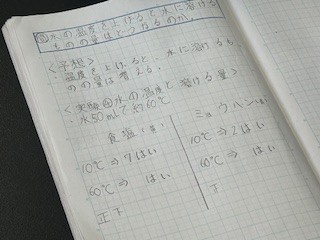 水の温度を上げると水に溶ける
ものの量はどうなるのか。
<予想>
・温度を上げると、水に溶けるも
のの量は増える。
<実験④水の温度と溶ける量>
・水50mLで約10℃
食塩
ミョウバン
10℃⇒7はい
10℃⇒2はい
60℃⇒ はい
60℃⇒ はい
正下
正